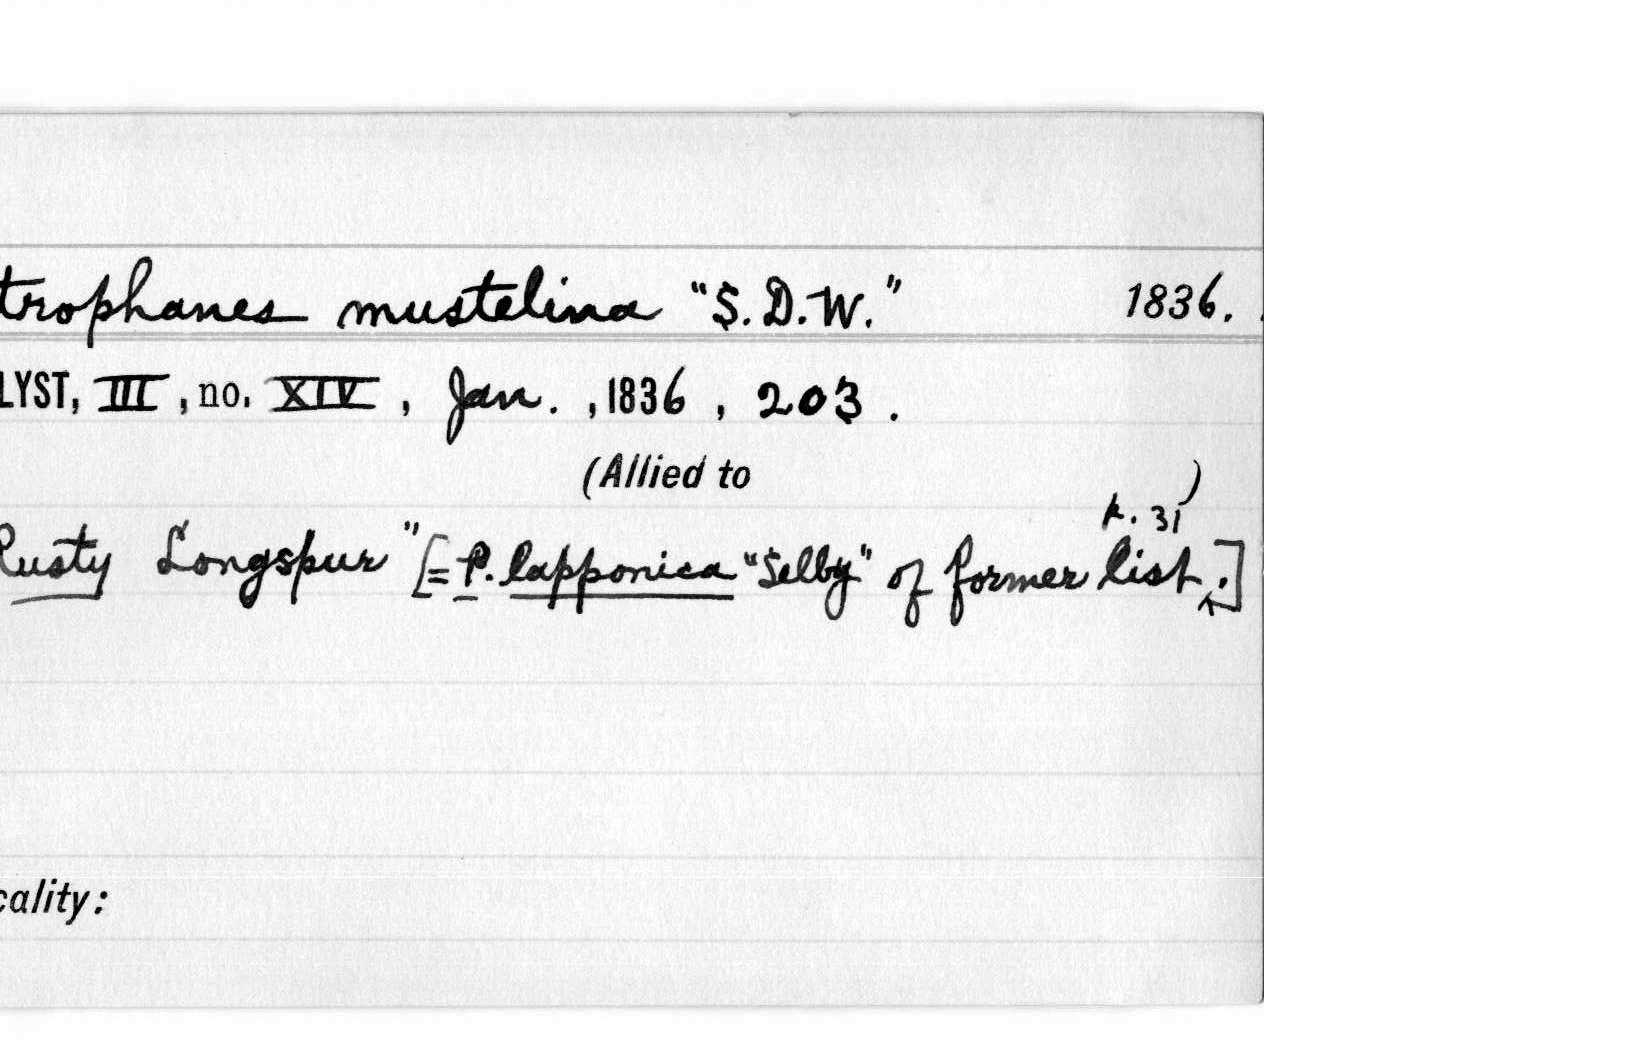 trophanes mustelina "S.D.W." 1836.
LYST, III, no. XIV, Jan., 1836, 203.
(Allied to )
p. 31
Rusty Longspur" [= P. lapponica "Selby" of former list.]
cality: